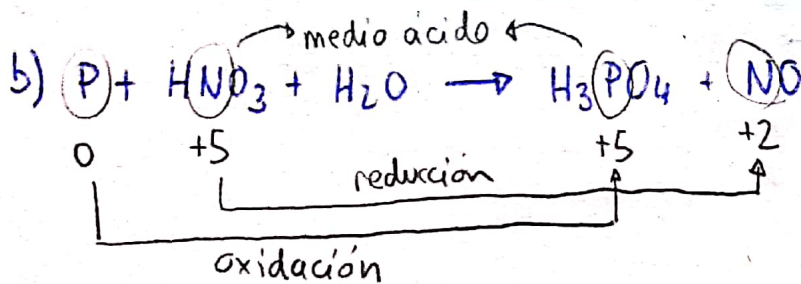 medio ácido
b) P + HNO3 + H2O → H3PO4 + NO
0 +5 +5 +2
reducción
oxidación